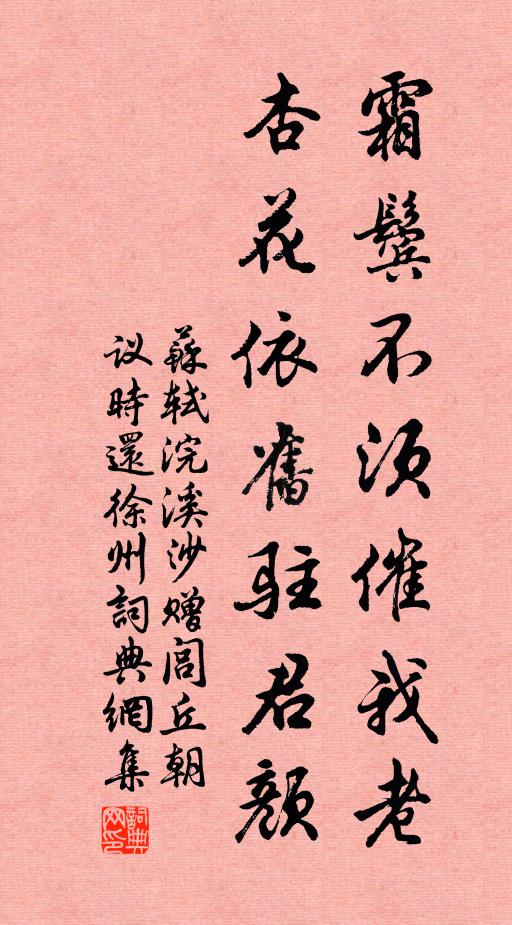 霜鬓不须催我老
杏花依舊駐君顏
蘇軾浣溪沙赠閭丘朝
议時還徐州詞典網集
詞典网印